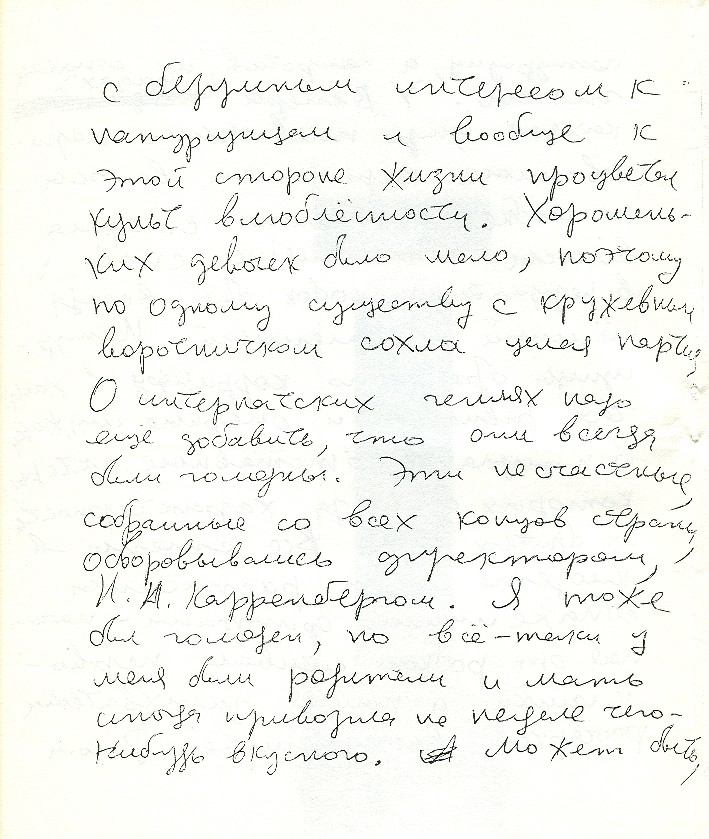 с безумным интересом к
натурщицам и вообще к
этой стороне жизни процветал
культ влюблённости. Хорошень-
ких девочек было мало, поэтому
по одному существу с кружевным
воротничком сохла целая партия,
О интернатских гениях надо
ещё добавить, что они всегда
были голодны. Эти несчастные,
собранные со всех концов страны,
обворовывались директором,
Н. А. Карренбергом. Я тоже
был голоден, но всё-таки у
меня были родители и мать
иногда привозила на неделе чего-
нибудь вкусного. Может быть,